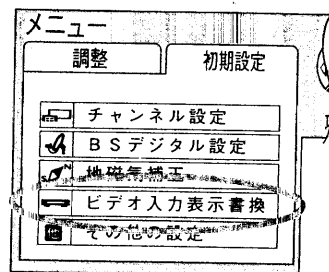 メニュー
調整
初期設定
チャンネル設定
BSデジタル設定
地磁気補正
ビデオ入力表示書換
他 その他の設定